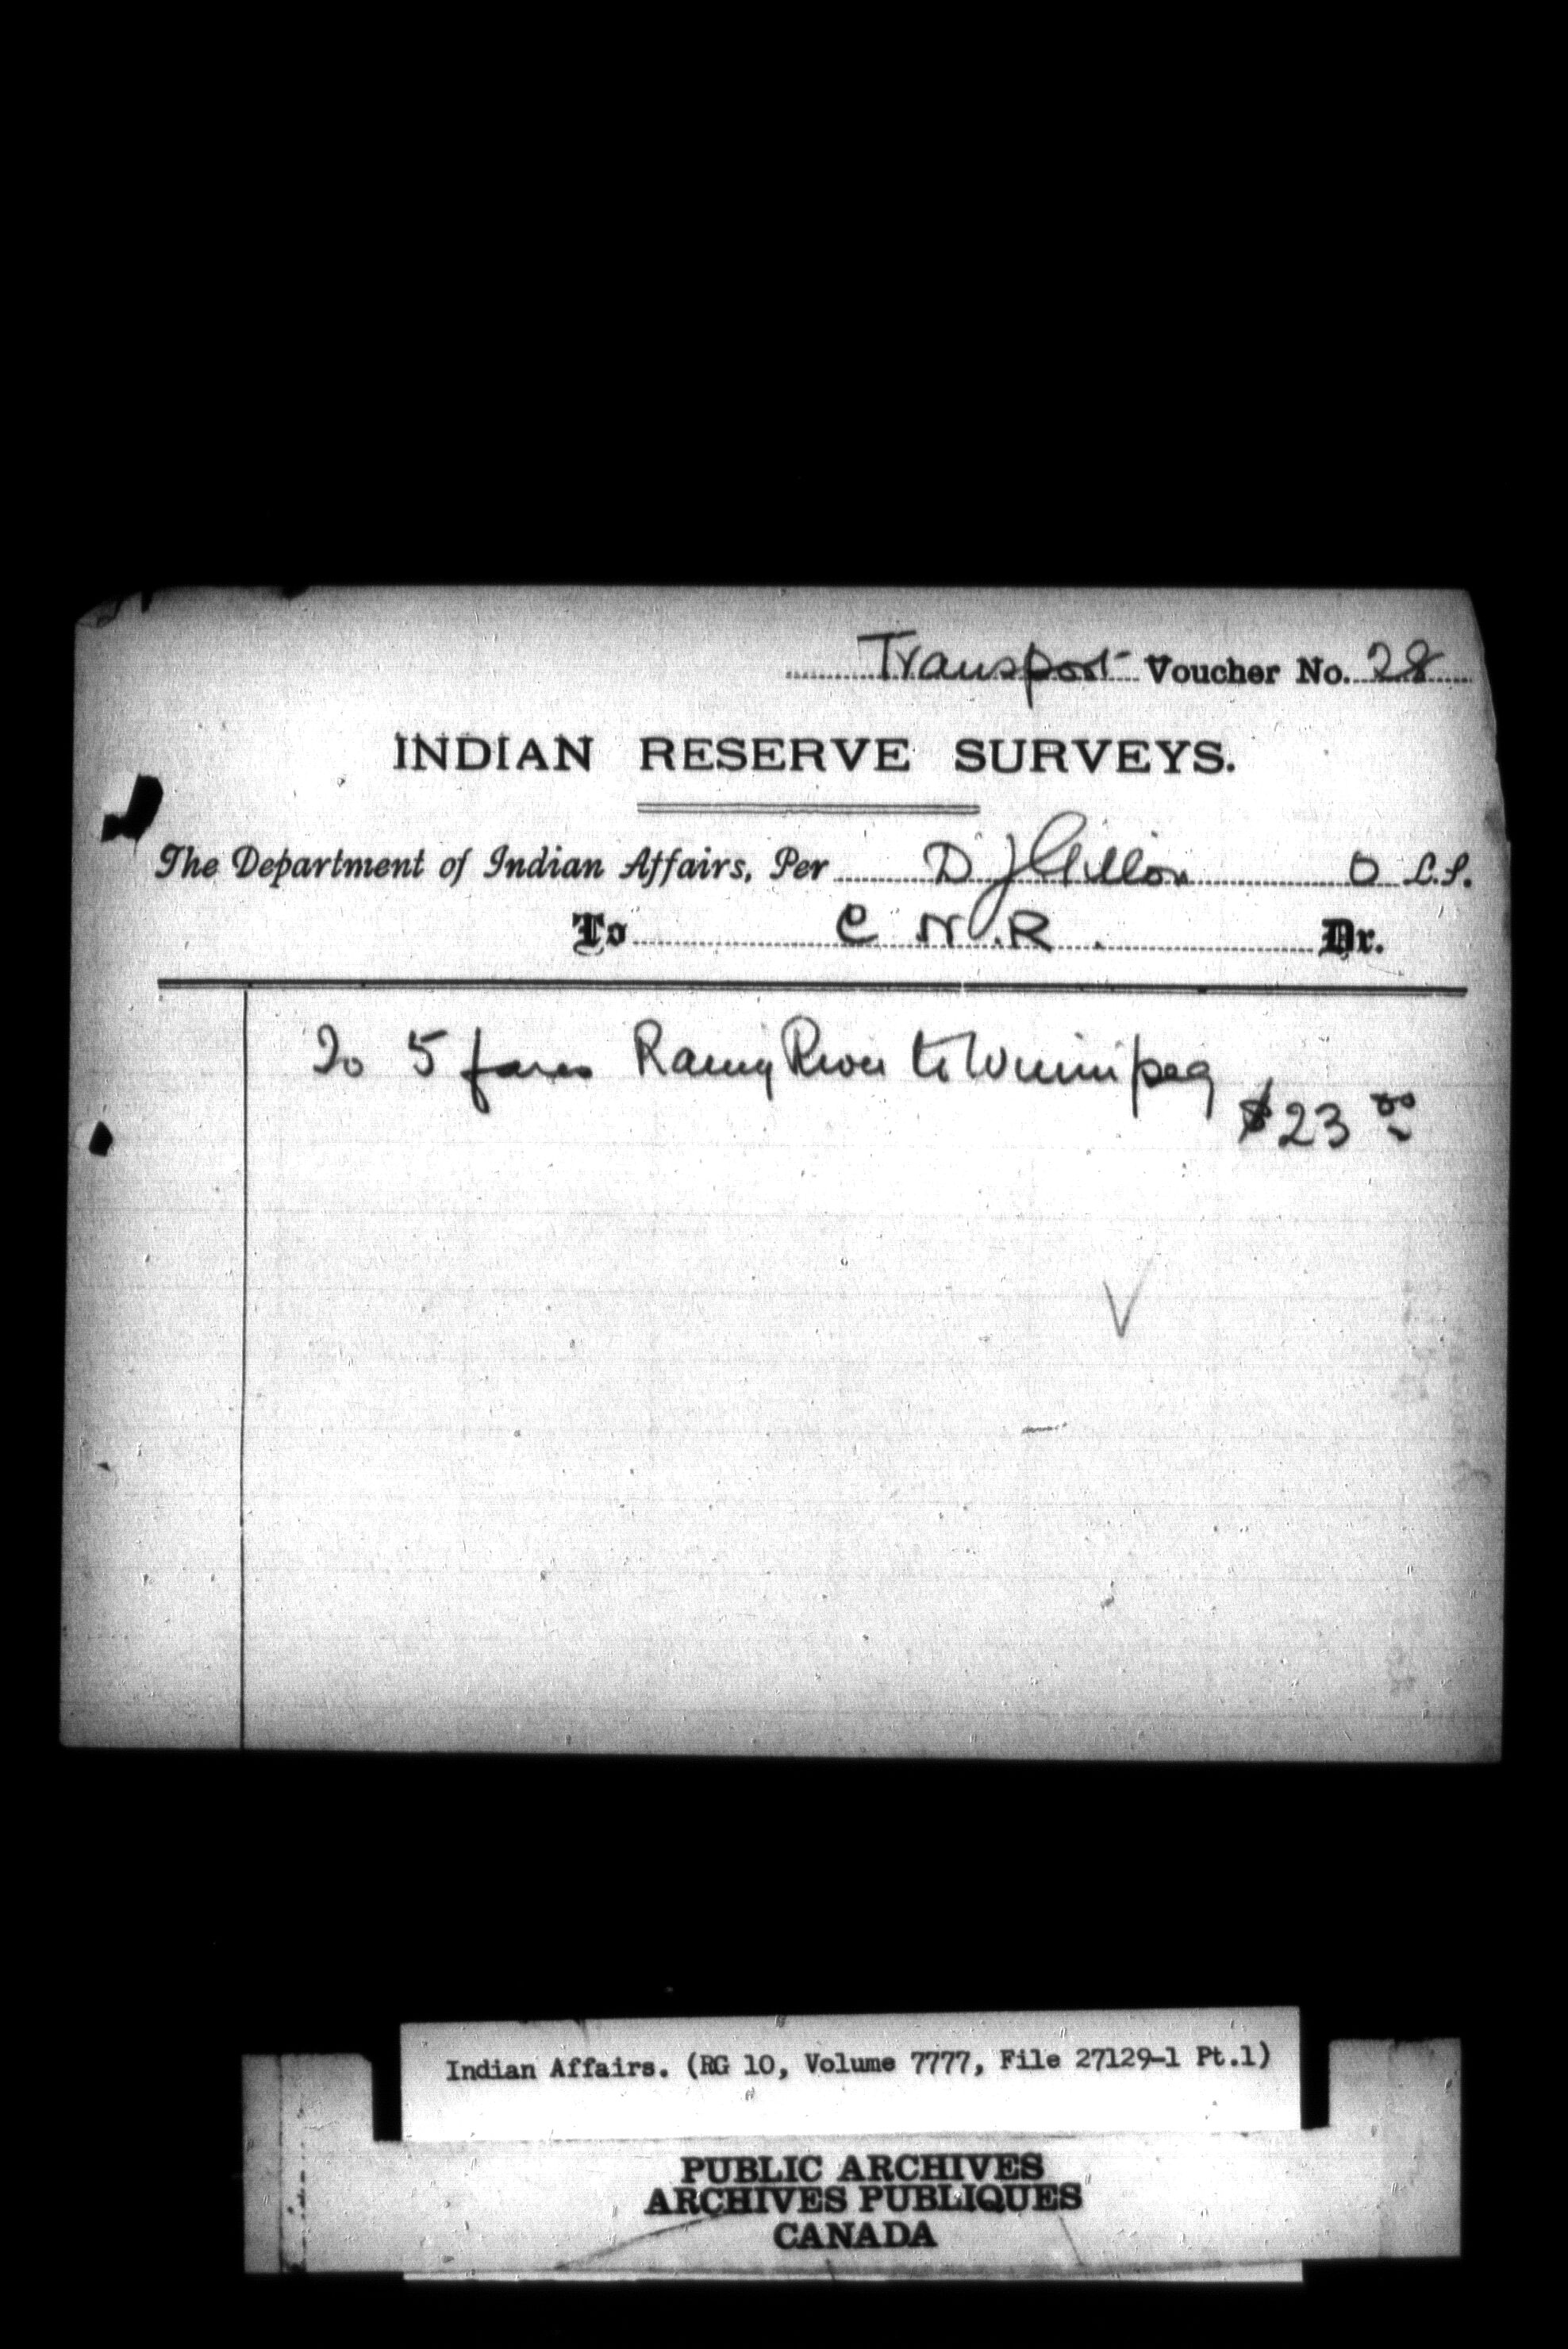 Transport Voucher No. 28
INDIAN RESERVE SURVEYS.
The Department of Indian Affairs, Per D J Gillon O L.S.
To C N.R. Dr.
To 5 fares Rainy River to Winnipeg
$23 00
Indian Affairs. (RG 10, Volume 7777, File 27129-1 Pt.1)
PUBLIC ARCHIVES
ARCHIVES PUBLIQUES
CANADA